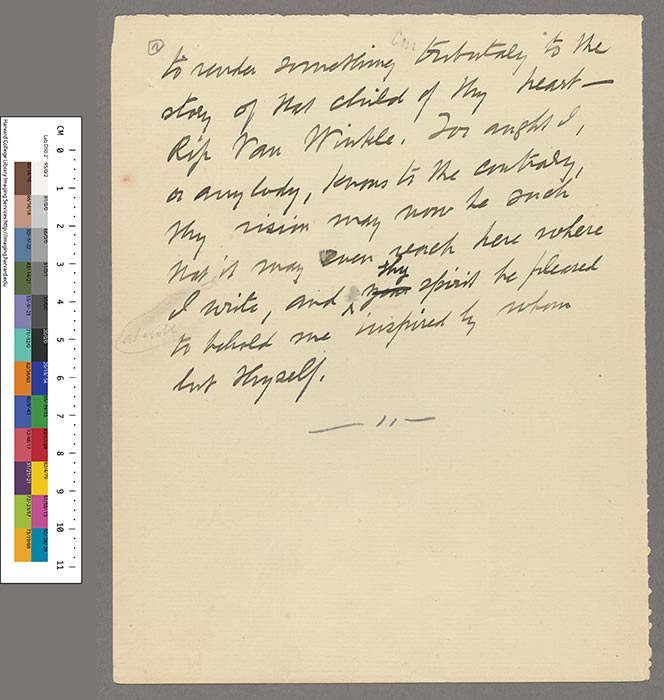 2
to render something tributary to the
story of that child of thy heart—
Rip Van Winkle. For aught I,
or anybody, knows to the contrary,
thy vision may now be such
that it may even reach here where
I write, and thy spirit be pleased
to behold me inspired by whom
but Thyself.
CM 0 1 2 3 4 5 6 7 8 9 10 11
Harvard College Library Imaging Services http://imaging.harvard.edu